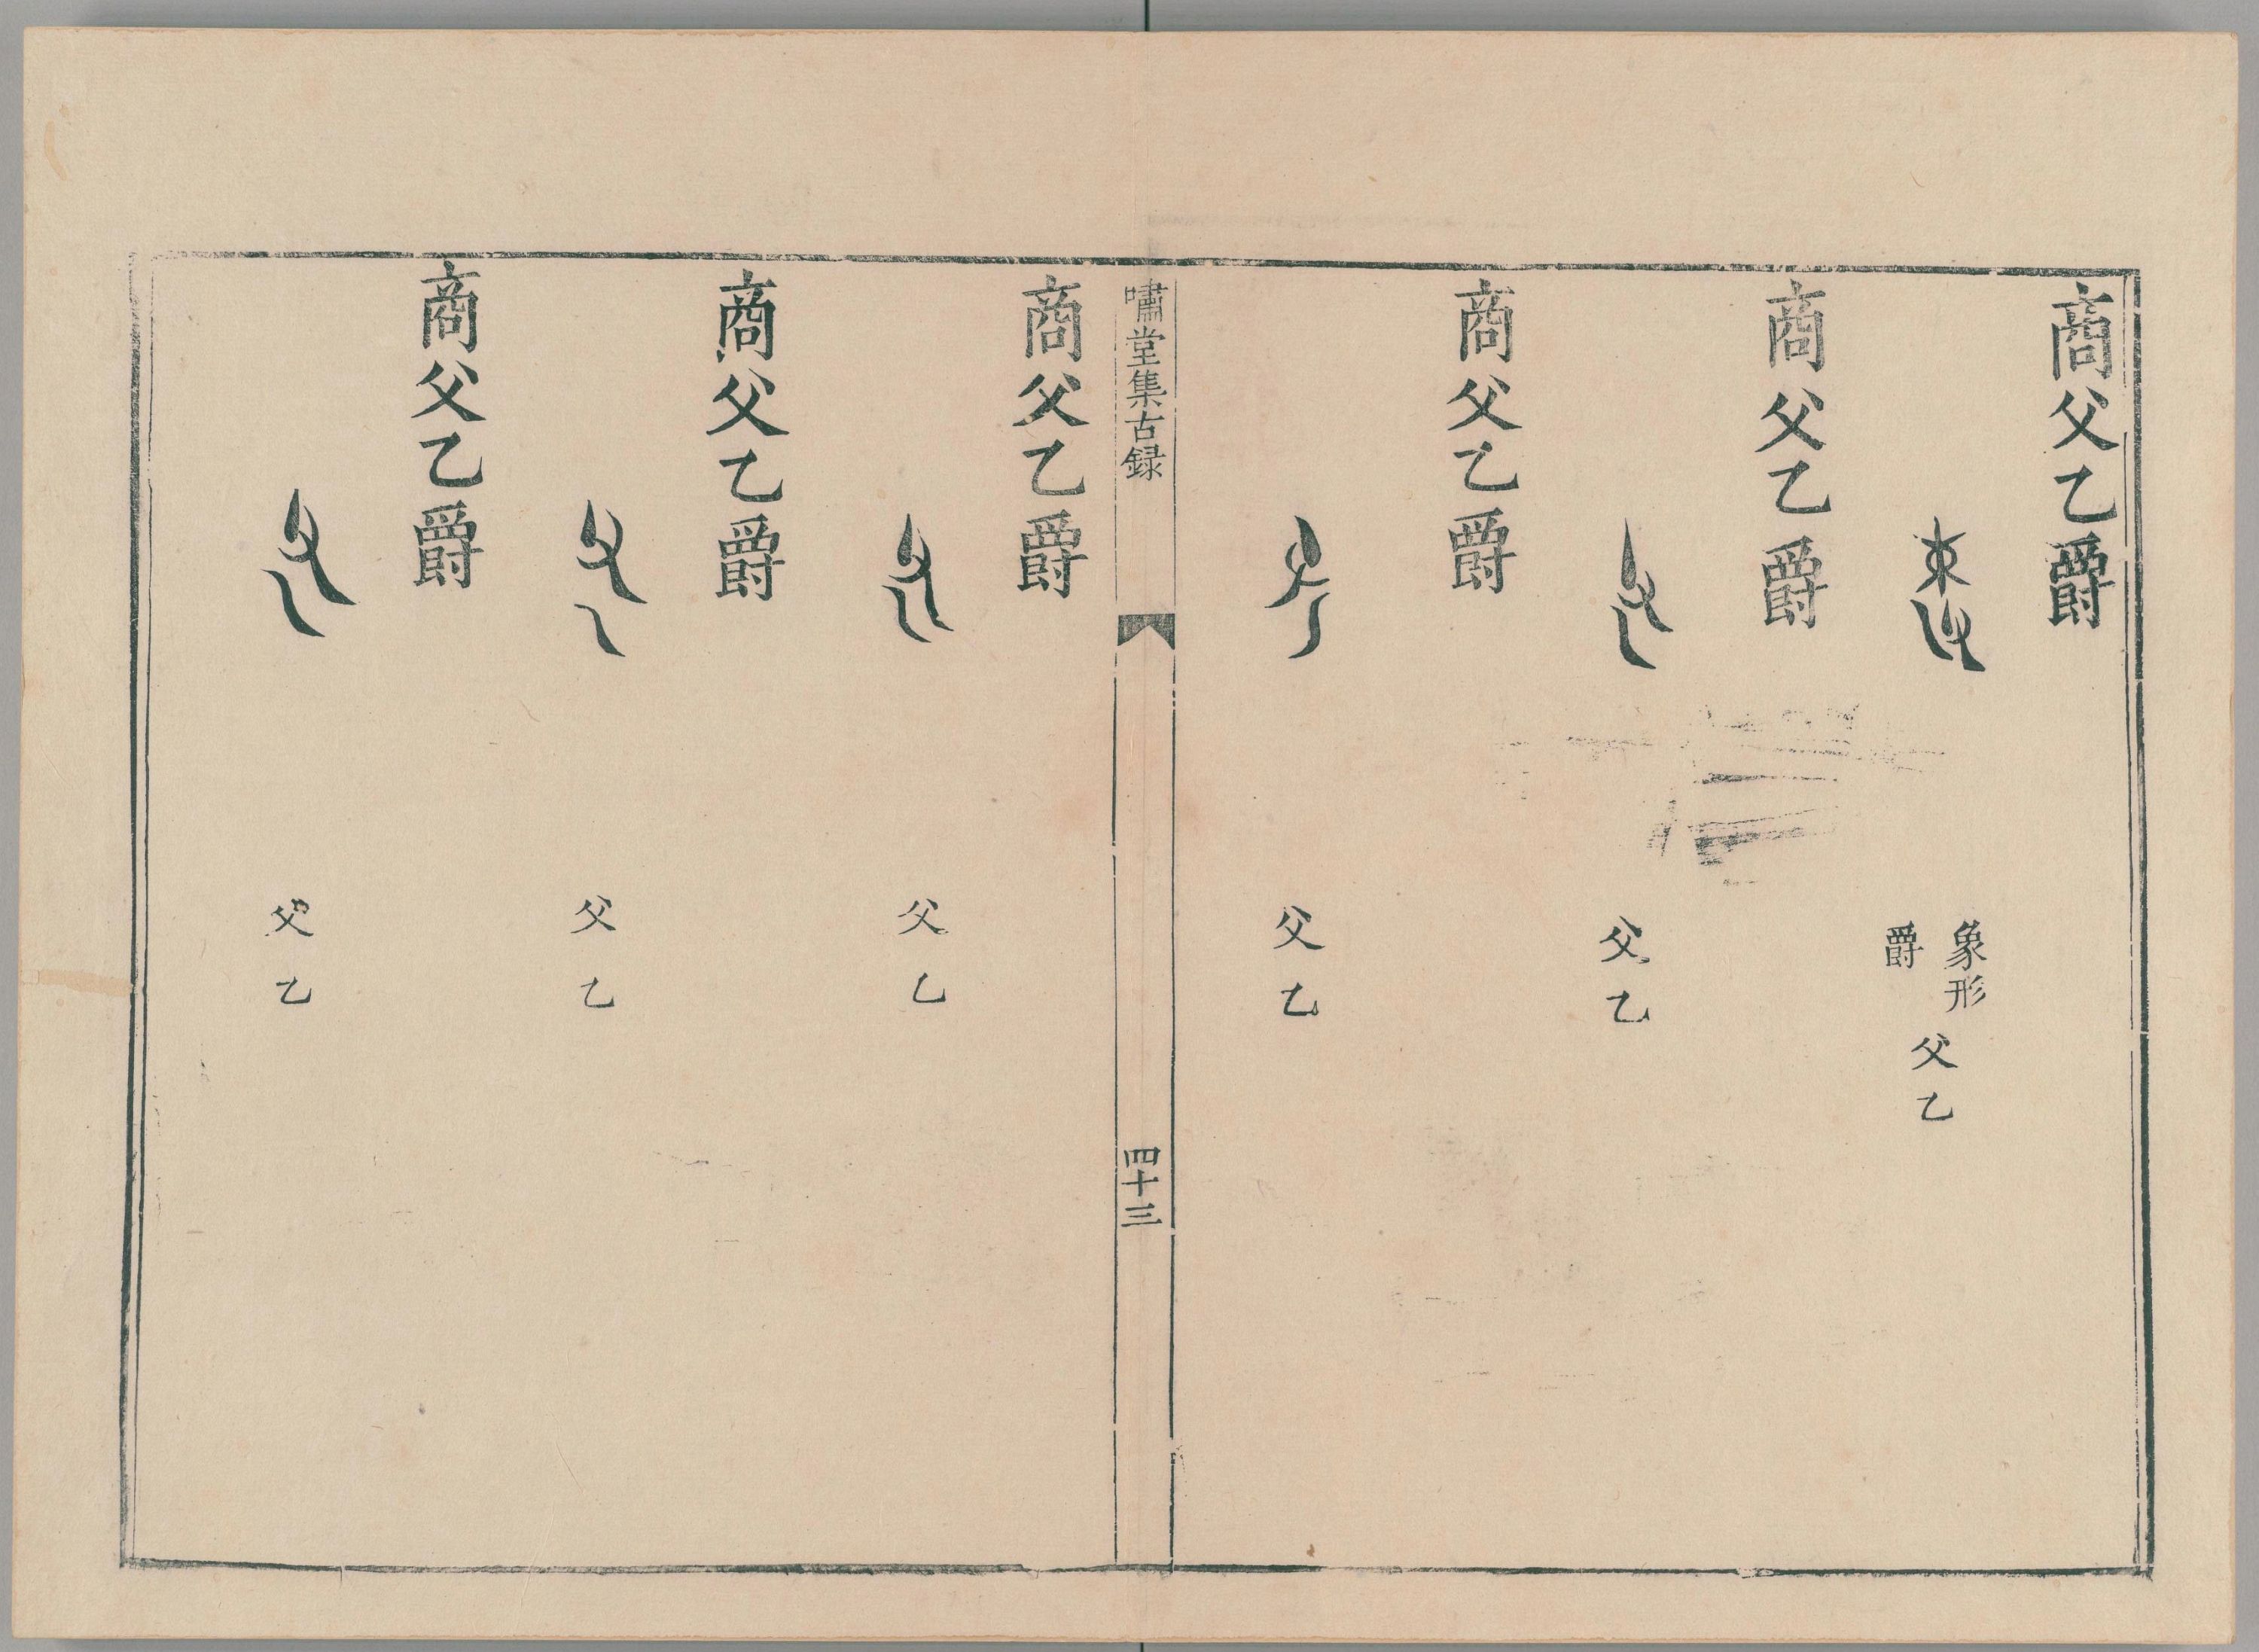 商父乙爵
象形
爵
父乙
商父乙爵
父乙
商父乙爵
父乙
嘯堂集古録
四十三
商父乙爵
父乙
商父乙爵
父乙
商父乙爵
父乙